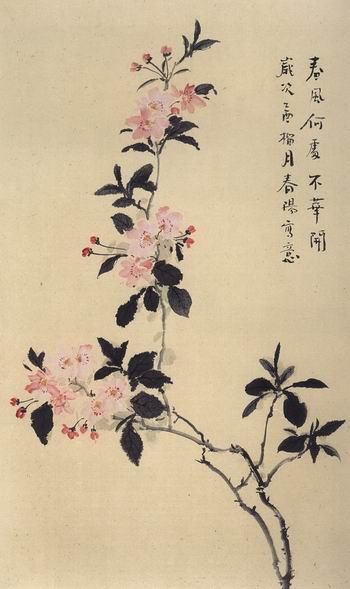 春風何處不華開
歲次乙酉榴月春陽寫意